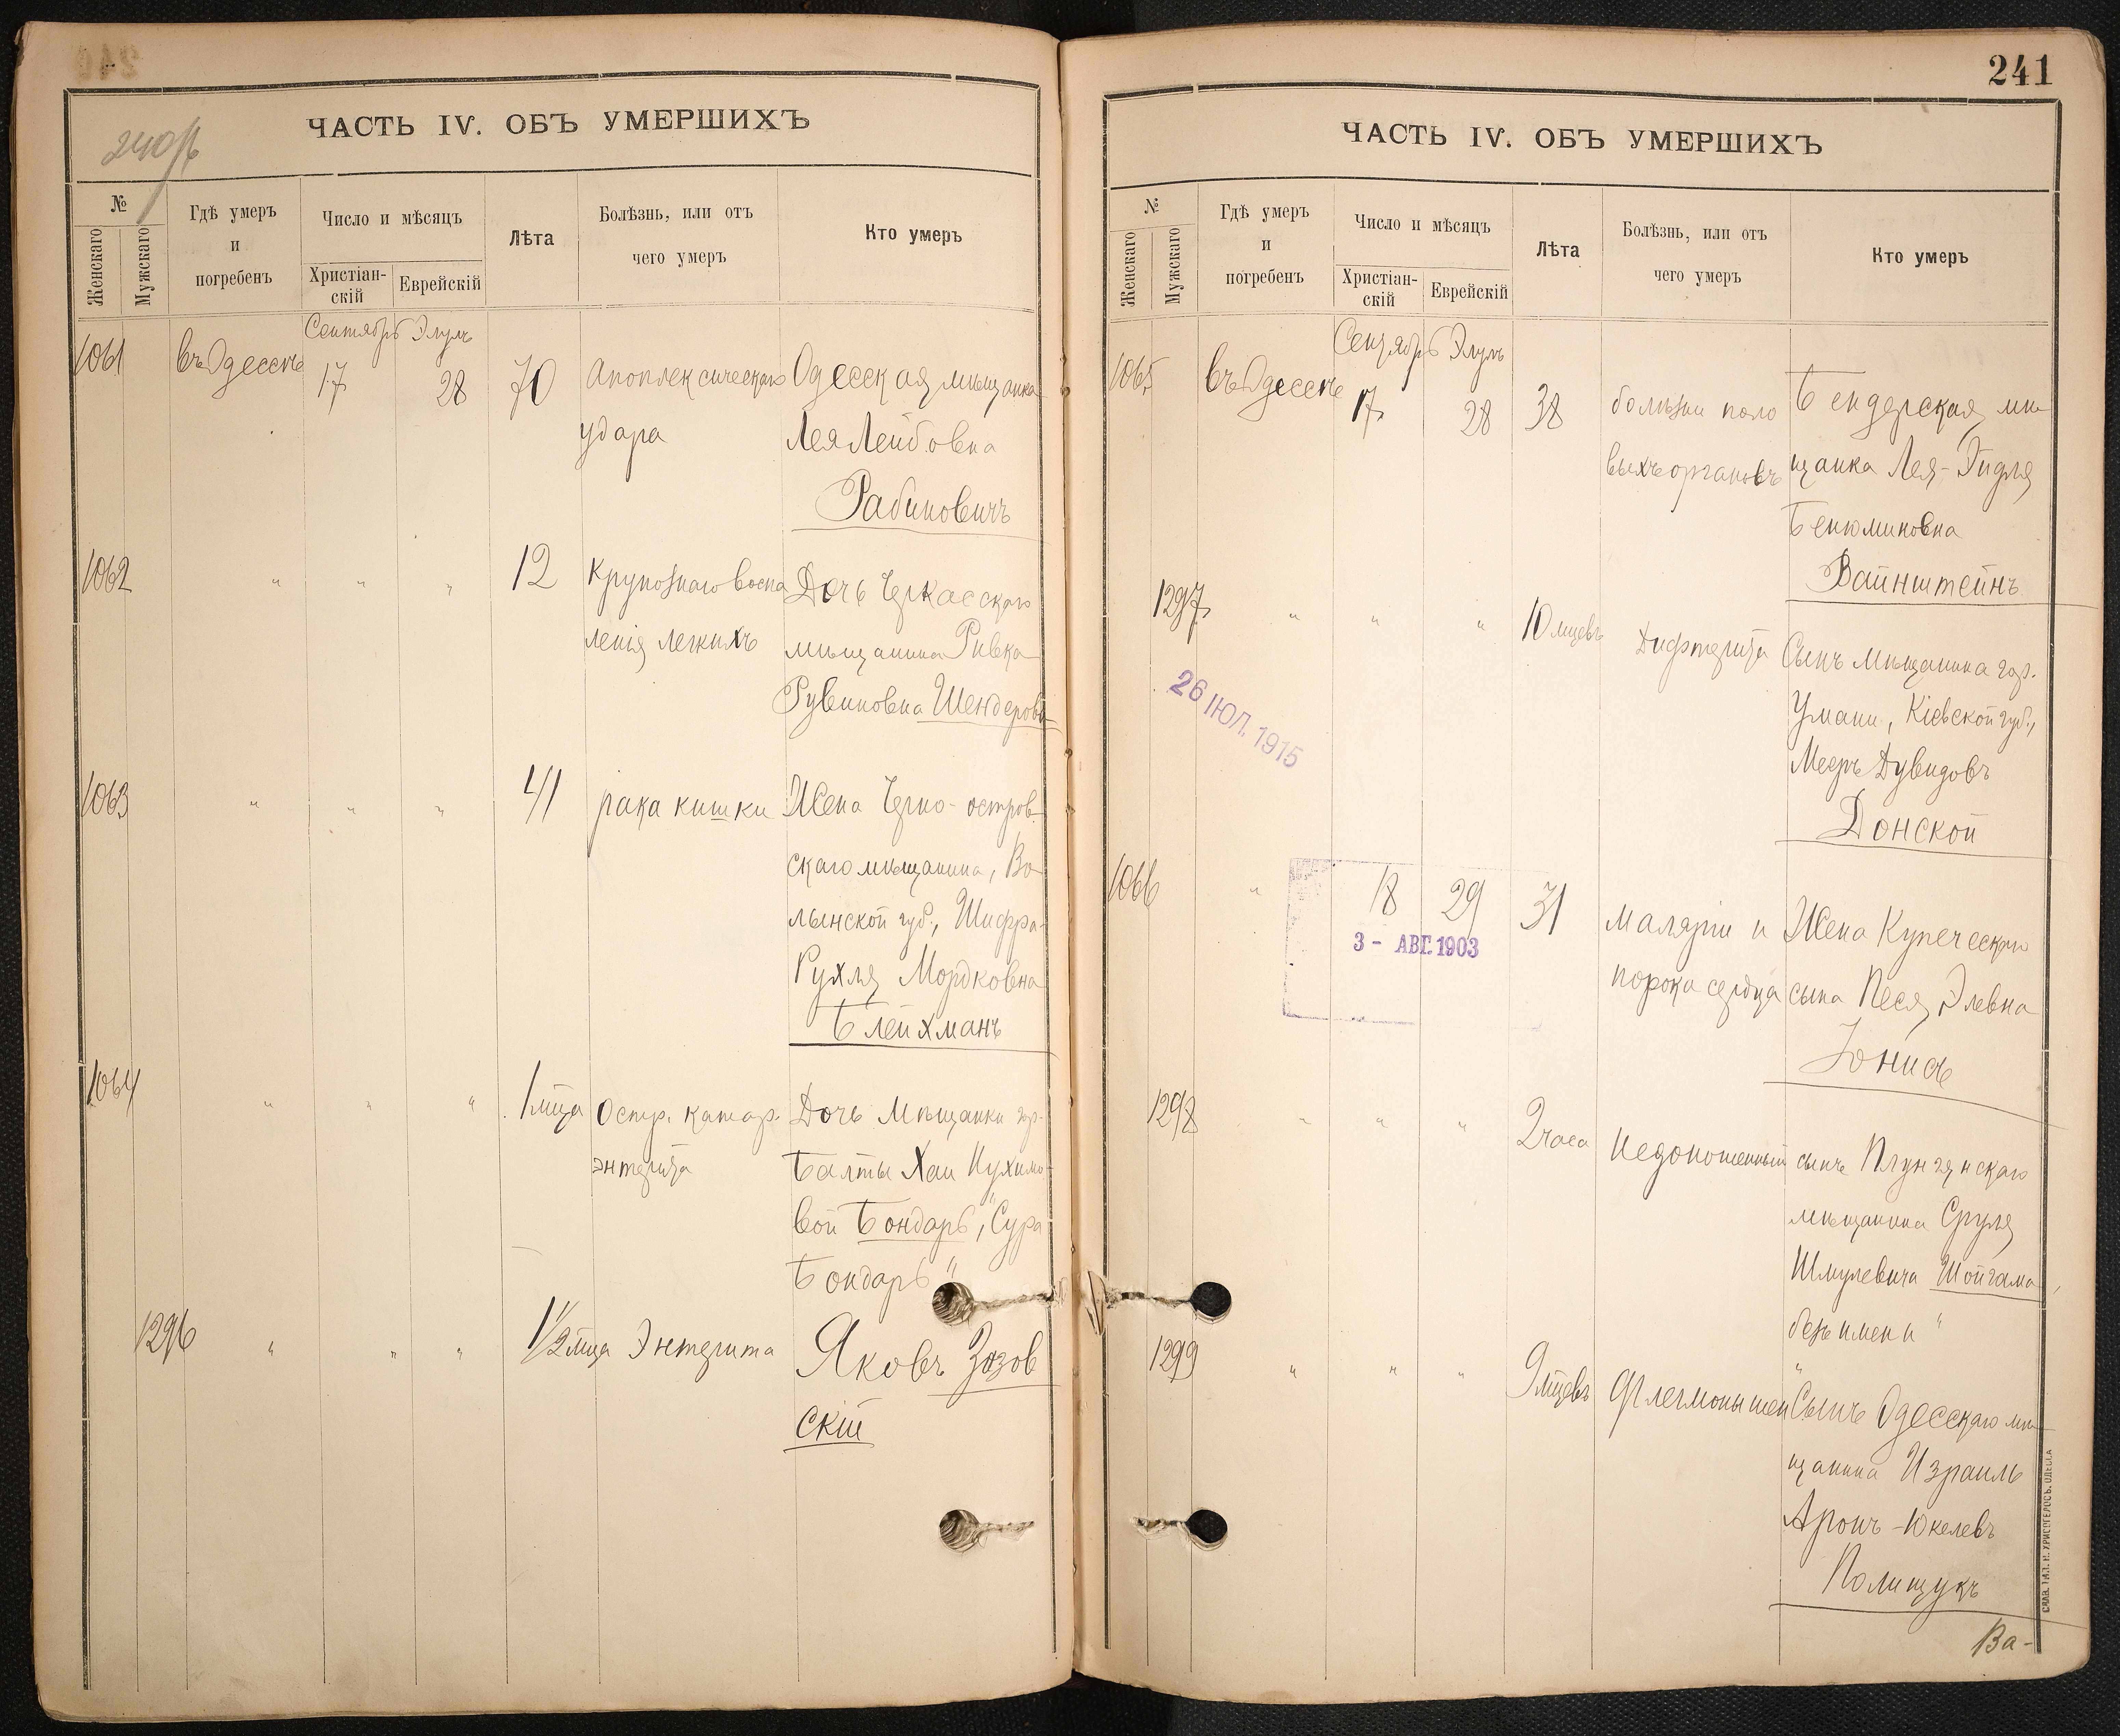 ЧАСТЬ IV. ОБЪ УМЕРШИХЪ
№
Женскаго
Мужскаго
Гдѣ умеръ
и
погребенъ
Число и мѣсяцъ
Христіан-
скій
Еврейскій
Лѣта
Болѣзнь, или отъ
чего умеръ
Кто умеръ
Сентябрь Элулъ
1061 въ Одессѣ 17 28 70 Апоплексическаго Одесская мѣщанка
удара Лея Лейбовна
Рабиновичъ
1062 " " " 12 Крупознаго воспа Дочь Черкасскаго
ленія легкихъ мѣщанина Ривка
Рувиновна Шендерова
1063 " " " 41 рака кишки Жена Черно-остров-
скаго мѣщанина, Во-
лынской губ., Шифра-
Рухля Мордковна
Блейхманъ
1064 " " " 1 мца Остр. катар. Дочь Мѣщанки гор.
энтерита Балты Хаи Нухимо-
вой Бондарь, "Сура
Бондарь"
1296 " " " 1 1/2 мца Энтерита Яковъ Зозов
скій
241
ЧАСТЬ IV. ОБЪ УМЕРШИХЪ
№
Женскаго
Мужскаго
Гдѣ умеръ
и
погребенъ
Число и мѣсяцъ
Христіан-
скій
Еврейскій
Лѣта
Болѣзнь, или отъ
чего умеръ
Кто умеръ
Сентябрь Элулъ
1065 въ Одессѣ 17 28 38 болѣзни поло Бендерская мѣ-
выхъ органовъ щанка Лея-Гидля
Бенюминовна
Вайнштейнъ
1297 " " " 10 мцевъ Дифтерита Сынъ мѣщанина гор.
26 ІЮЛ. 1915
Умани, Кіевской губ.,
Мееръ Дувидовъ
Донской
1066 " 18 29 31 Маляріи и Жена Купеческаго
3 - АВГ. 1903
порока сердца сына Песя Элевна
Юнисъ
1298 " " " 2 часа Недоношенный сынъ Плунгянскаго
мѣщанина Сруля
Шмулевича Шойгама
безъ имени"
1299 " " " 9 мцевъ Флегмоны шеи Сынъ Одесскаго мѣ-
щанина Израиль
Аронъ-Юкелевъ
Полищукъ
Ва-